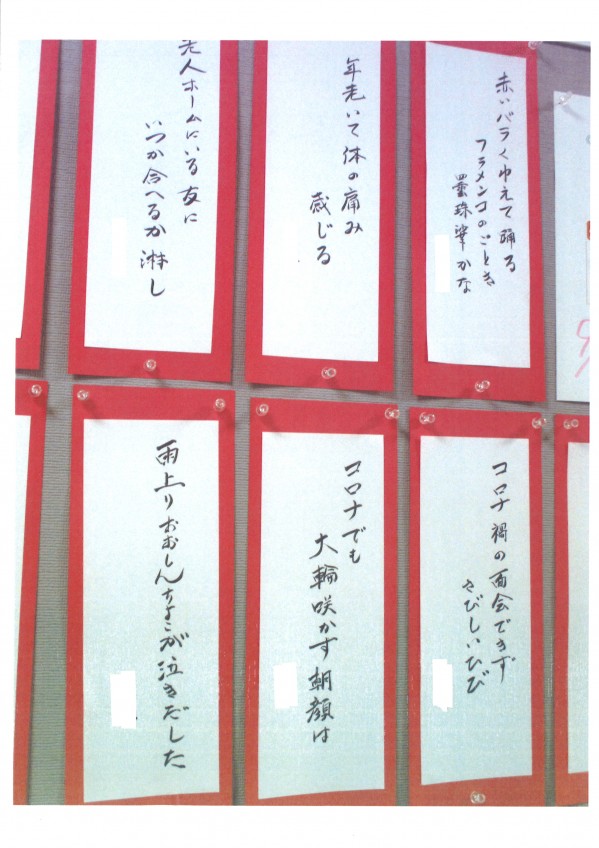 赤いバラくわえて踊る
フラメンコのごとき
珠華かな
年老いて体の痛み
感じる
老人ホームにいる友に
いつか会へるか淋し
コロナ禍の面会できず
さびしいひび
コロナでも
大輪咲かす朝顔は
雨上り が泣きだした